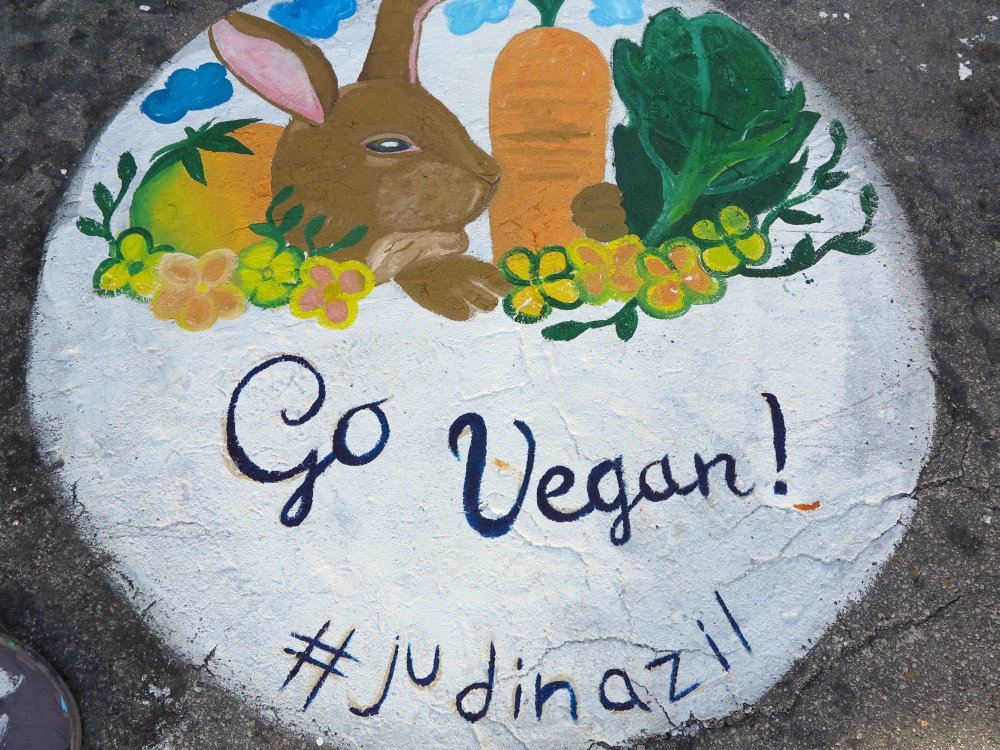 Go Vegan!
#judinazil